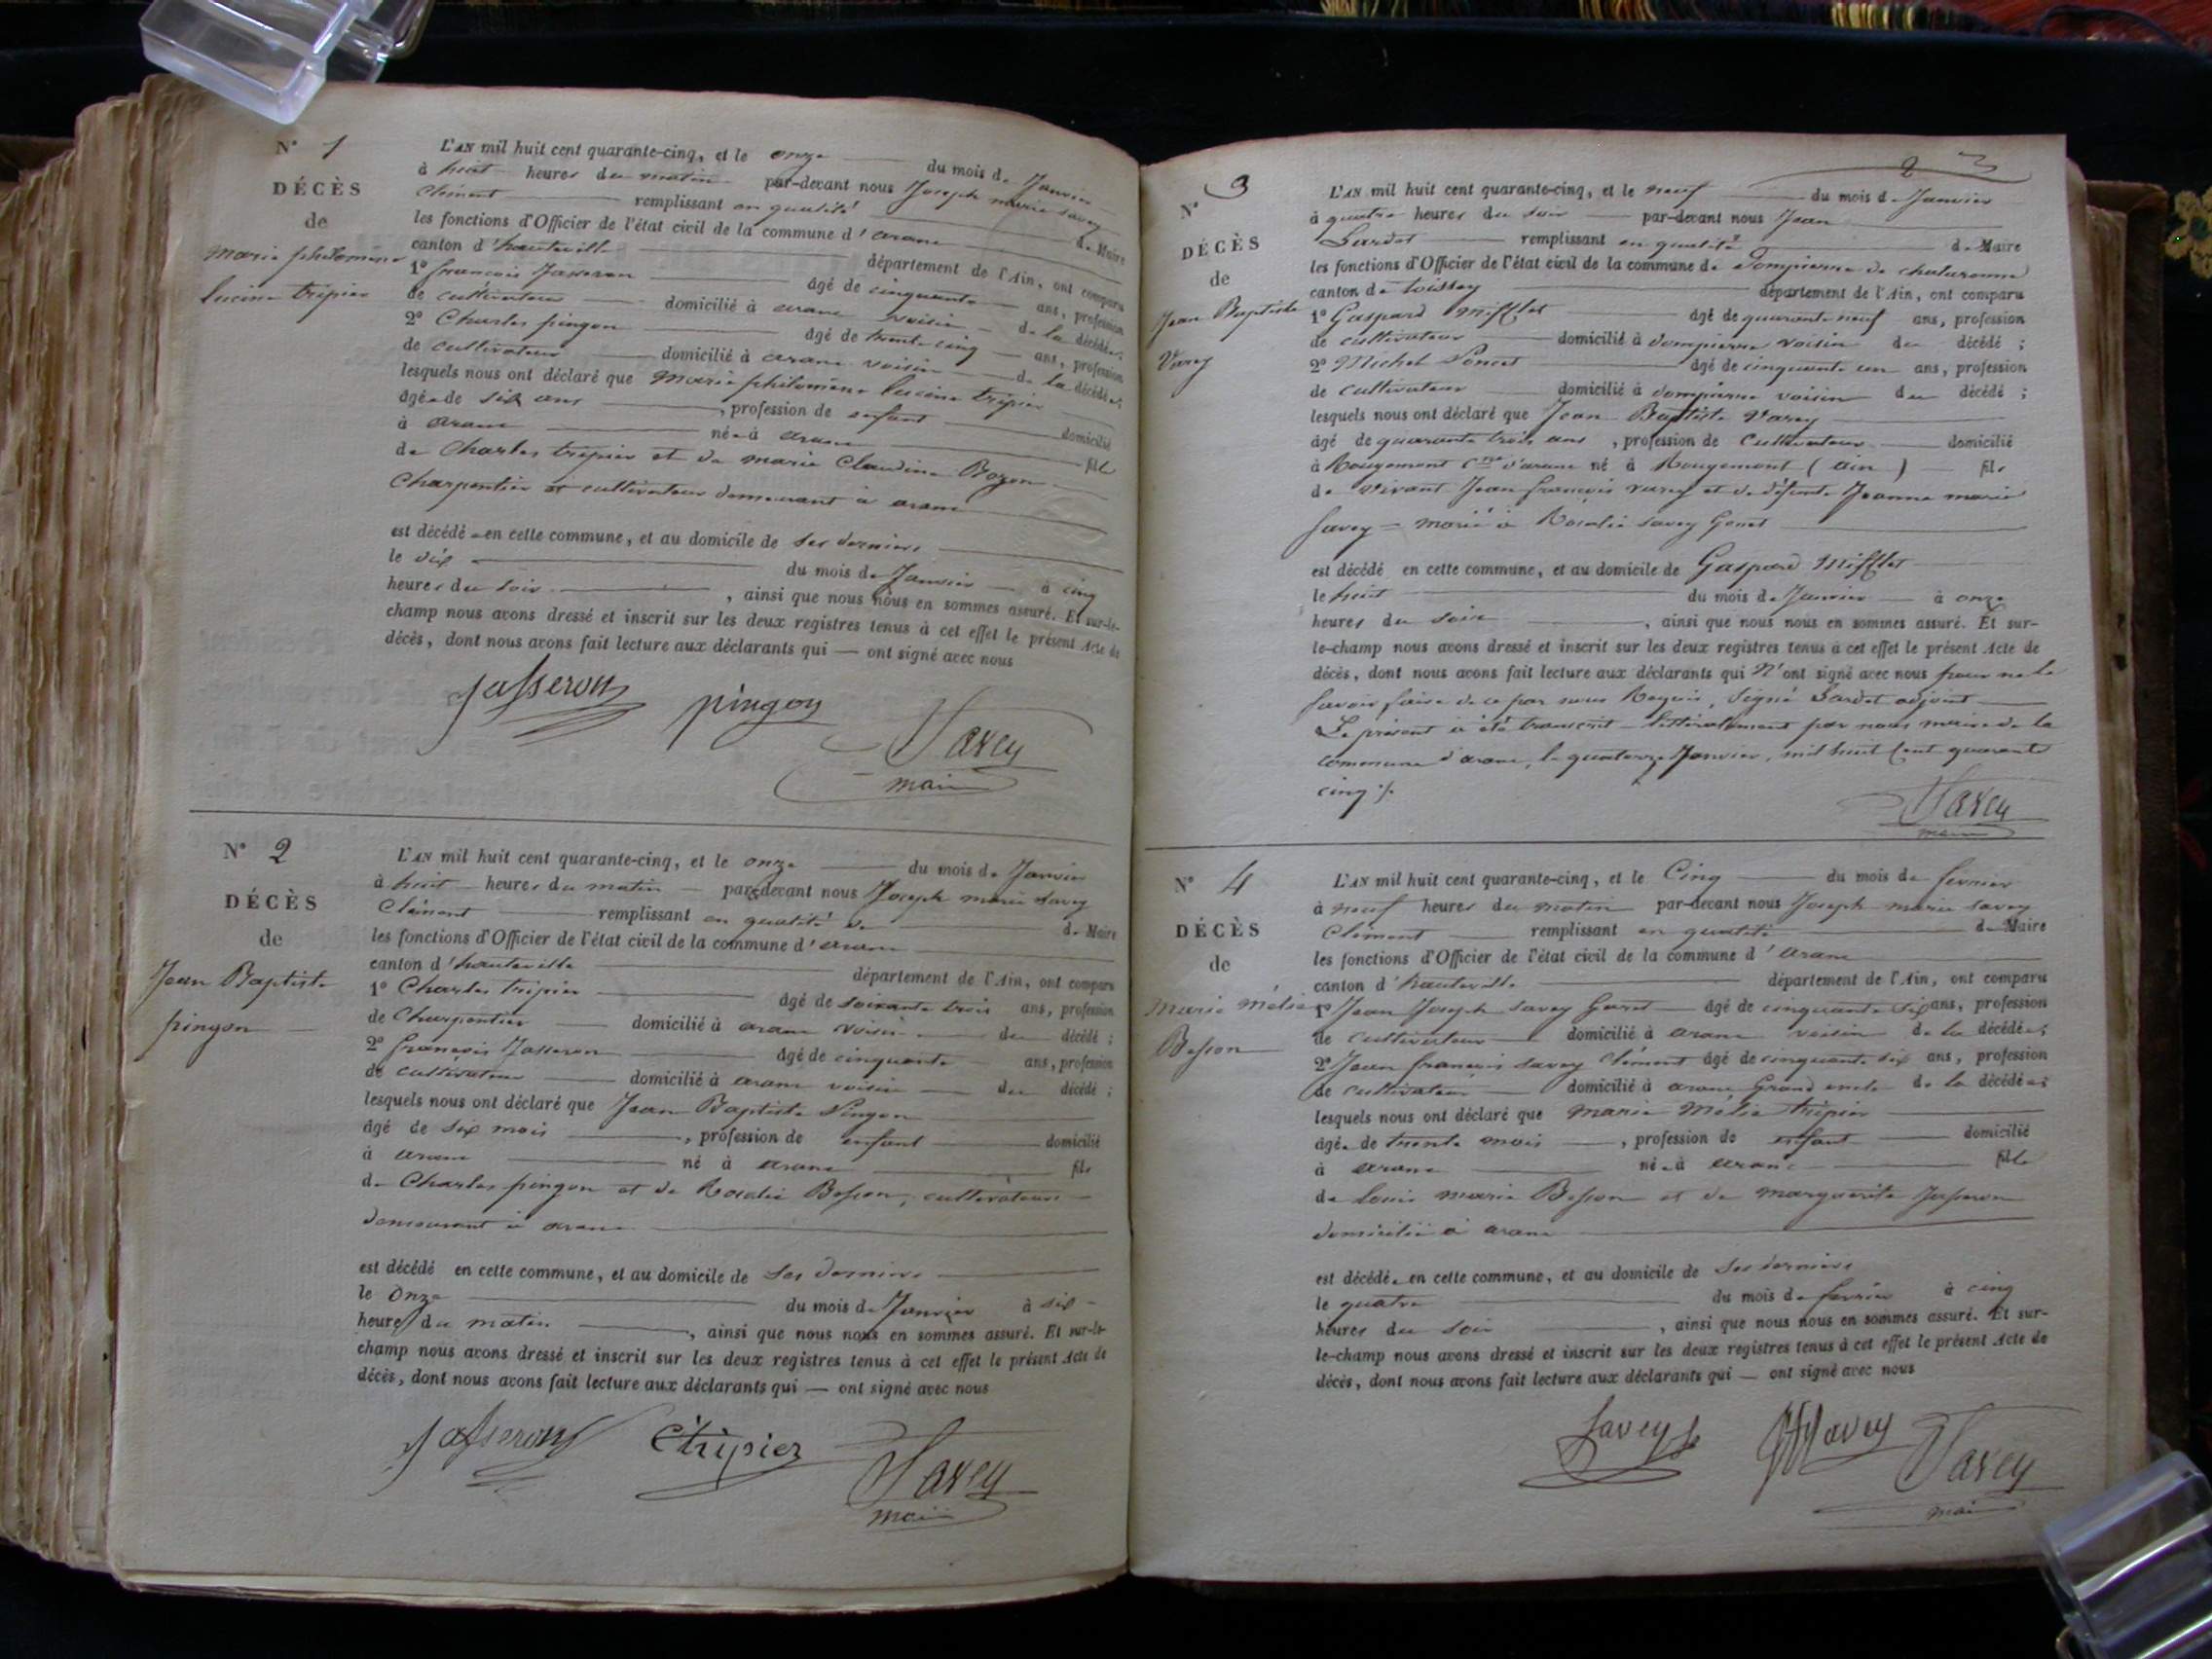 N° 1
DÉCÈS
de
Marie philomène
lucine tripier
L'AN mil huit cent quarante-cinq, et le onze du mois de Janvier
à huit heures du matin par-devant nous Joseph marie savey
Clément remplissant en qualité de Maire
les fonctions d'Officier de l'état civil de la commune d'aranc
canton d'hauteville département de l'Ain, ont comparu
1° françois Jasseron âgé de cinquante ans, profession
de cultivateur domicilié à aranc voisin de la décédée;
2° Charles pingon âgé de trente cinq ans, profession
de cultivateur domicilié à aranc voisin de la décédée;
lesquels nous ont déclaré que Marie philomène lucine tripier
âgée de six ans, profession de enfant domicilié
à aranc née à aranc fille
de Charles tripier et de marie Claudine Bozon
Charpentier et cultivateur demeurant à aranc
est décédée en cette commune, et au domicile de ses derniers
le dix du mois de Janvier à cinq
heures du soir, ainsi que nous nous en sommes assuré. Et sur-le-
champ nous avons dressé et inscrit sur les deux registres tenus à cet effet le présent Acte de
décès, dont nous avons fait lecture aux déclarants qui — ont signé avec nous
Jasseron pingon Savey
maire
N° 2
DÉCÈS
de
Jean Baptiste
pingon
L'AN mil huit cent quarante-cinq, et le onze du mois de Janvier
à huit heures du matin par-devant nous Joseph marie savey
Clément remplissant en qualité de de Maire
les fonctions d'Officier de l'état civil de la commune d'aranc
canton d'hauteville département de l'Ain, ont comparu
1° Charles tripier âgé de soixante trois ans, profession
de Charpentier domicilié à aranc voisin du décédé;
2° françois Jasseron âgé de cinquante ans, profession
de cultivateur domicilié à aranc voisin du décédé;
lesquels nous ont déclaré que Jean Baptiste Pingon
âgé de six mois, profession de enfant domicilié
à aranc né à aranc fils
de Charles pingon et de Rosalie Besson, cultivateurs
demeurant à aranc
est décédé en cette commune, et au domicile de ses derniers
le onze du mois de Janvier à six
heures du matin, ainsi que nous nous en sommes assuré. Et sur-le-
champ nous avons dressé et inscrit sur les deux registres tenus à cet effet le présent Acte de
décès, dont nous avons fait lecture aux déclarants qui — ont signé avec nous
Jasseron Ctripier Savey
maire
N° 3
DÉCÈS
de
Jean Baptiste
Varey
L'AN mil huit cent quarante-cinq, et le neuf du mois de Janvier
à quatre heures du soir par-devant nous Jean
Lardet remplissant en qualité de Maire
les fonctions d'Officier de l'état civil de la commune de Dompierre de chalaronne
canton de toissey département de l'Ain, ont comparu
1° Gaspard Mifflet âgé de quarante neuf ans, profession
de cultivateur domicilié à dompierre voisin du décédé;
2° Michel Poncet âgé de cinquante un ans, profession
de cultivateur domicilié à dompierre voisin du décédé;
lesquels nous ont déclaré que Jean Baptiste Varey
âgé de quarante trois ans, profession de Cultivateur domicilié
à Rougemont Cne d'aranc né à Rougemont (ain) fils
de vivant Jean françois varey et de défunte Jeanne marie
Savey = marié à Rosalie savey Genet
est décédé en cette commune, et au domicile de Gaspard Mifflet
le huit du mois de Janvier à onze
heures du soir, ainsi que nous nous en sommes assuré. Et sur-
le-champ nous avons dressé et inscrit sur les deux registres tenus à cet effet le présent Acte de
décès, dont nous avons fait lecture aux déclarants qui N'ont signé avec nous pour ne le
savoir faire de ce par nous Requis, Signé Lardet adjoint
Le présent a été transcrit littéralement par nous maire de la
commune d'aranc, le quatorze Janvier, mil huit cent quarante
cinq ./.
Savey
maire
N° 4
DÉCÈS
de
Marie Mélie
Besson
L'AN mil huit cent quarante-cinq, et le Cinq du mois de fevrier
à neuf heures du matin par-devant nous Joseph marie savey
Clément remplissant en qualité de Maire
les fonctions d'Officier de l'état civil de la commune d'Aranc
canton d'hauteville département de l'Ain, ont comparu
1° Jean Joseph savey Genet âgé de cinquante six ans, profession
de cultivateur domicilié à aranc voisin de la décédée;
2° Jean françois savey Clément âgé de cinquante six ans, profession
de cultivateur domicilié à aranc Grand oncle de la décédée;
lesquels nous ont déclaré que marie Mélie tripier
âgée de trente mois, profession de enfant domicilié
à aranc née à aranc fille
de louis marie Besson et de marguerite Jasseron
domicilié à aranc
est décédée en cette commune, et au domicile de ses derniers
le quatre du mois de fevrier à cinq
heures du soir, ainsi que nous nous en sommes assuré. Et sur-
le-champ nous avons dressé et inscrit sur les deux registres tenus à cet effet le présent Acte de
décès, dont nous avons fait lecture aux déclarants qui — ont signé avec nous
Savey Savey Savey
maire